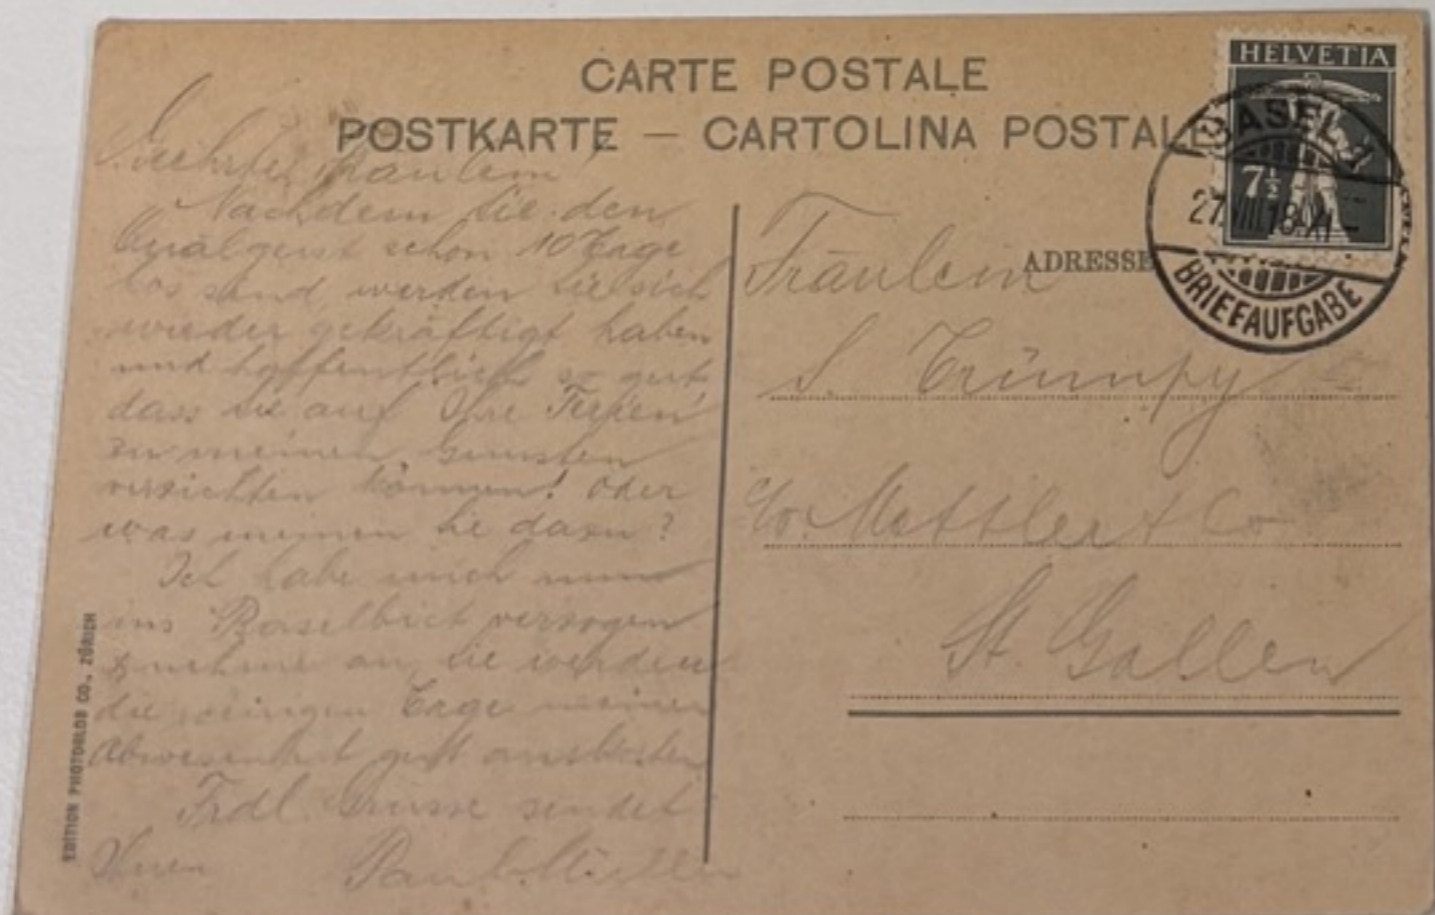 CARTE POSTALE
POSTKARTE — CARTOLINA POSTALE
HELVETIA
7½
BASEL 1
27.VIII.18.XI—
BRIEFAUFGABE
Geehrtes Fräulein
Nachdem Sie den
Quälgeist schon 10 Tage
los sind, werden Sie sich
wieder gekräftigt haben
und hoffentlich so gut
dass Sie auf Ihre Ferien
zu meinen Gunsten
verzichten können! Oder
was meinen Sie dazu?
Ich habe mich nun
ins Baselbiet verzogen
& nehme an, Sie werden
die wenigen Tage meiner
Abwesenheit gut auskosten
Frdl. Grüsse sendet
Ihnen Paul Müller
ADRESSE
Fräulein
S. Trümpy
c/o. Mettler & Co
St. Gallen
EDITION PHOTOGLOB CO., ZÜRICH